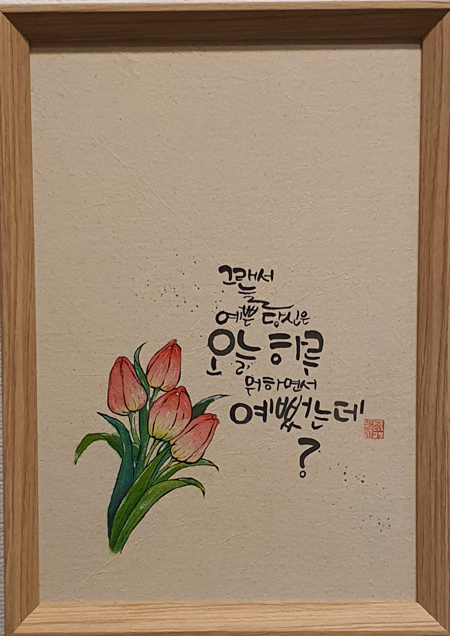 그래서
늘
예쁜 당신은
오늘 하루
뭐하면서
예뻤는데
?